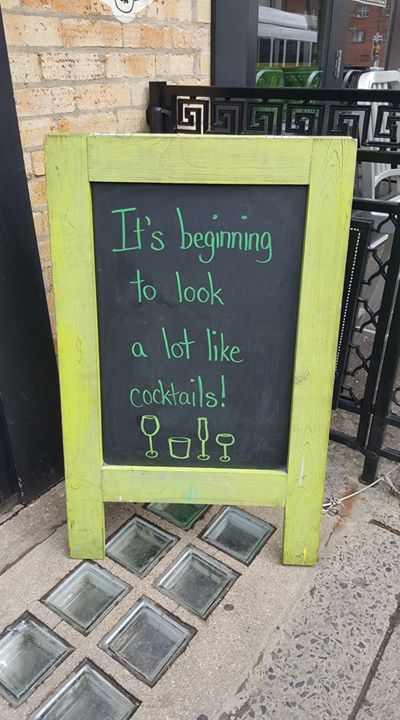 It's beginning
to look
a lot like
cocktails!